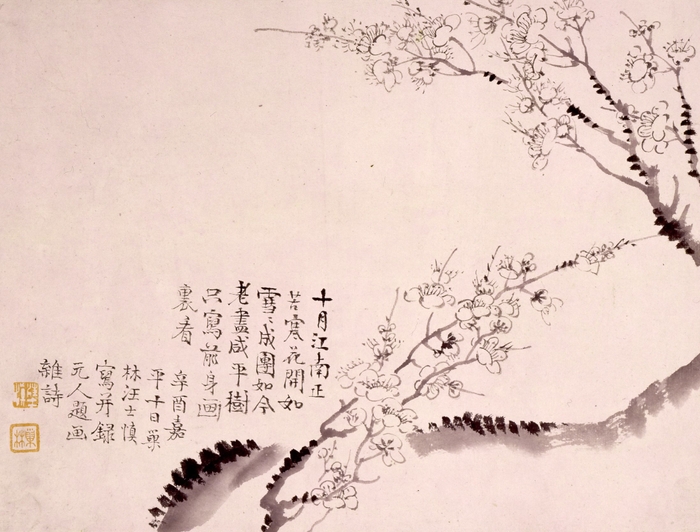 十月江南正
苦寒花開如
雪〻成團如今
老盡咸平樹
只寫前身画
裏看
辛酉嘉
平十日巢
林汪士慎
寫并錄
元人題画
雜詩